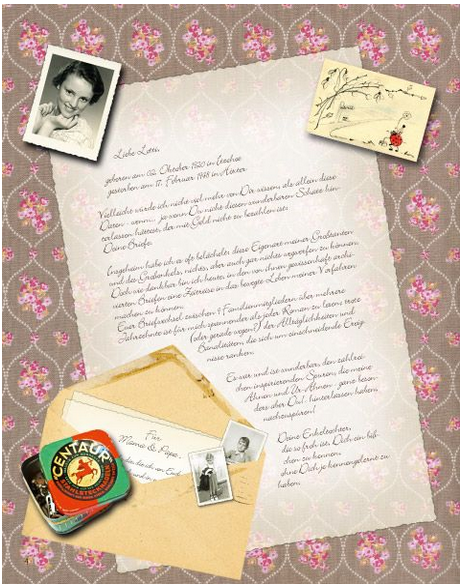 Liebe Lotti,
geboren am 02. Oktober 1920 in
gestorben am 17. Februar 1948 in
Vielleicht würde ich nicht viel mehr von Dir wissen als allein diese
Daten - wenn ... ja wenn Du nicht diesen wunderbaren Schatz hin-
terlassen hättest, der mit Geld nicht zu bezahlen ist:
Deine Briefe.
Insgeheim habe ich es oft belächelt diese Eigenart meiner Großtanten
und des Großonkels, nichts, aber auch gar nichts wegwerfen zu können.
Doch wie dankbar bin ich heute, in den von ihnen gewissenhaft archi-
vierten Briefen eine Zeitreise in das bewegte Leben meiner Vorfahren
machen zu können.
Euer Briefwechsel zwischen 7 Familienmitgliedern über mehrere
Jahrzehnte ist für mich spannender als jeder Roman zu lesen, trotz
(oder gerade wegen?) der Alltäglichkeiten und
Banalitäten die sich um einschneidende Ereig-
nisse ranken.
Es war und ist wunderbar, den zahlrei-
chen inspirierenden Spuren, die meine
Ahnen und Ur-Ahnen - ganz beson-
ders aber Du! - hinterlassen haben,
nachzuspüren!
Deine Enkeltochter,
die so froh ist Dich ein biß-
chen zu kennen,
ohne Dich je kennengelernt zu
haben.
Für
Mama & Papa.
CENTAUR
STAHLSTECKNADELN
4